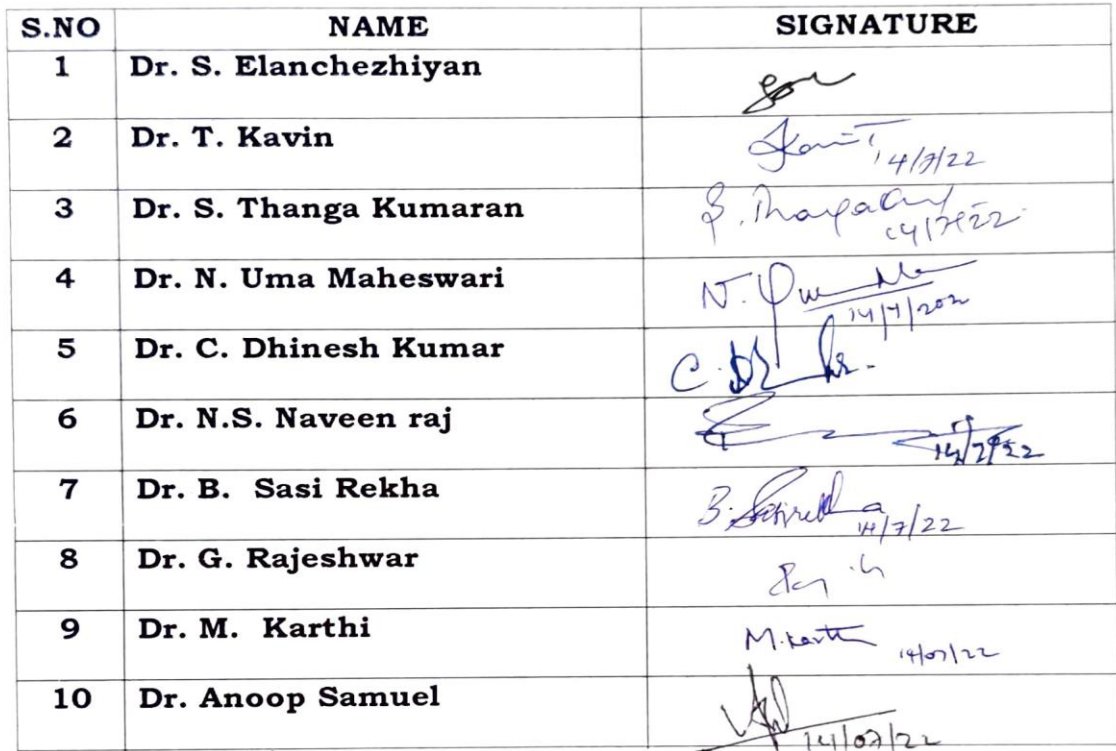 S.NO NAME SIGNATURE
1 Dr. S. Elanchezhiyan
2 Dr. T. Kavin 14/7/22
3 Dr. S. Thanga Kumaran 14/7/22
4 Dr. N. Uma Maheswari N. 14/7/202
5 Dr. C. Dhinesh Kumar C.
6 Dr. N.S. Naveen raj 14/7/22
7 Dr. B. Sasi Rekha B. Sasirekha 14/7/22
8 Dr. G. Rajeshwar
9 Dr. M. Karthi M. Karthi 14/07/22
10 Dr. Anoop Samuel 14/07/22